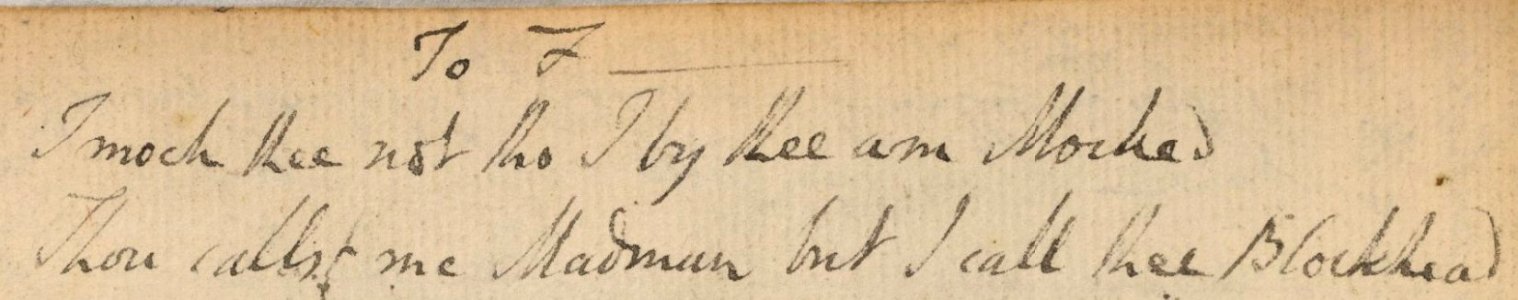 To F
I mock thee not tho I by thee am Mocked
Thou callst me Madman but I call thee Blockhead